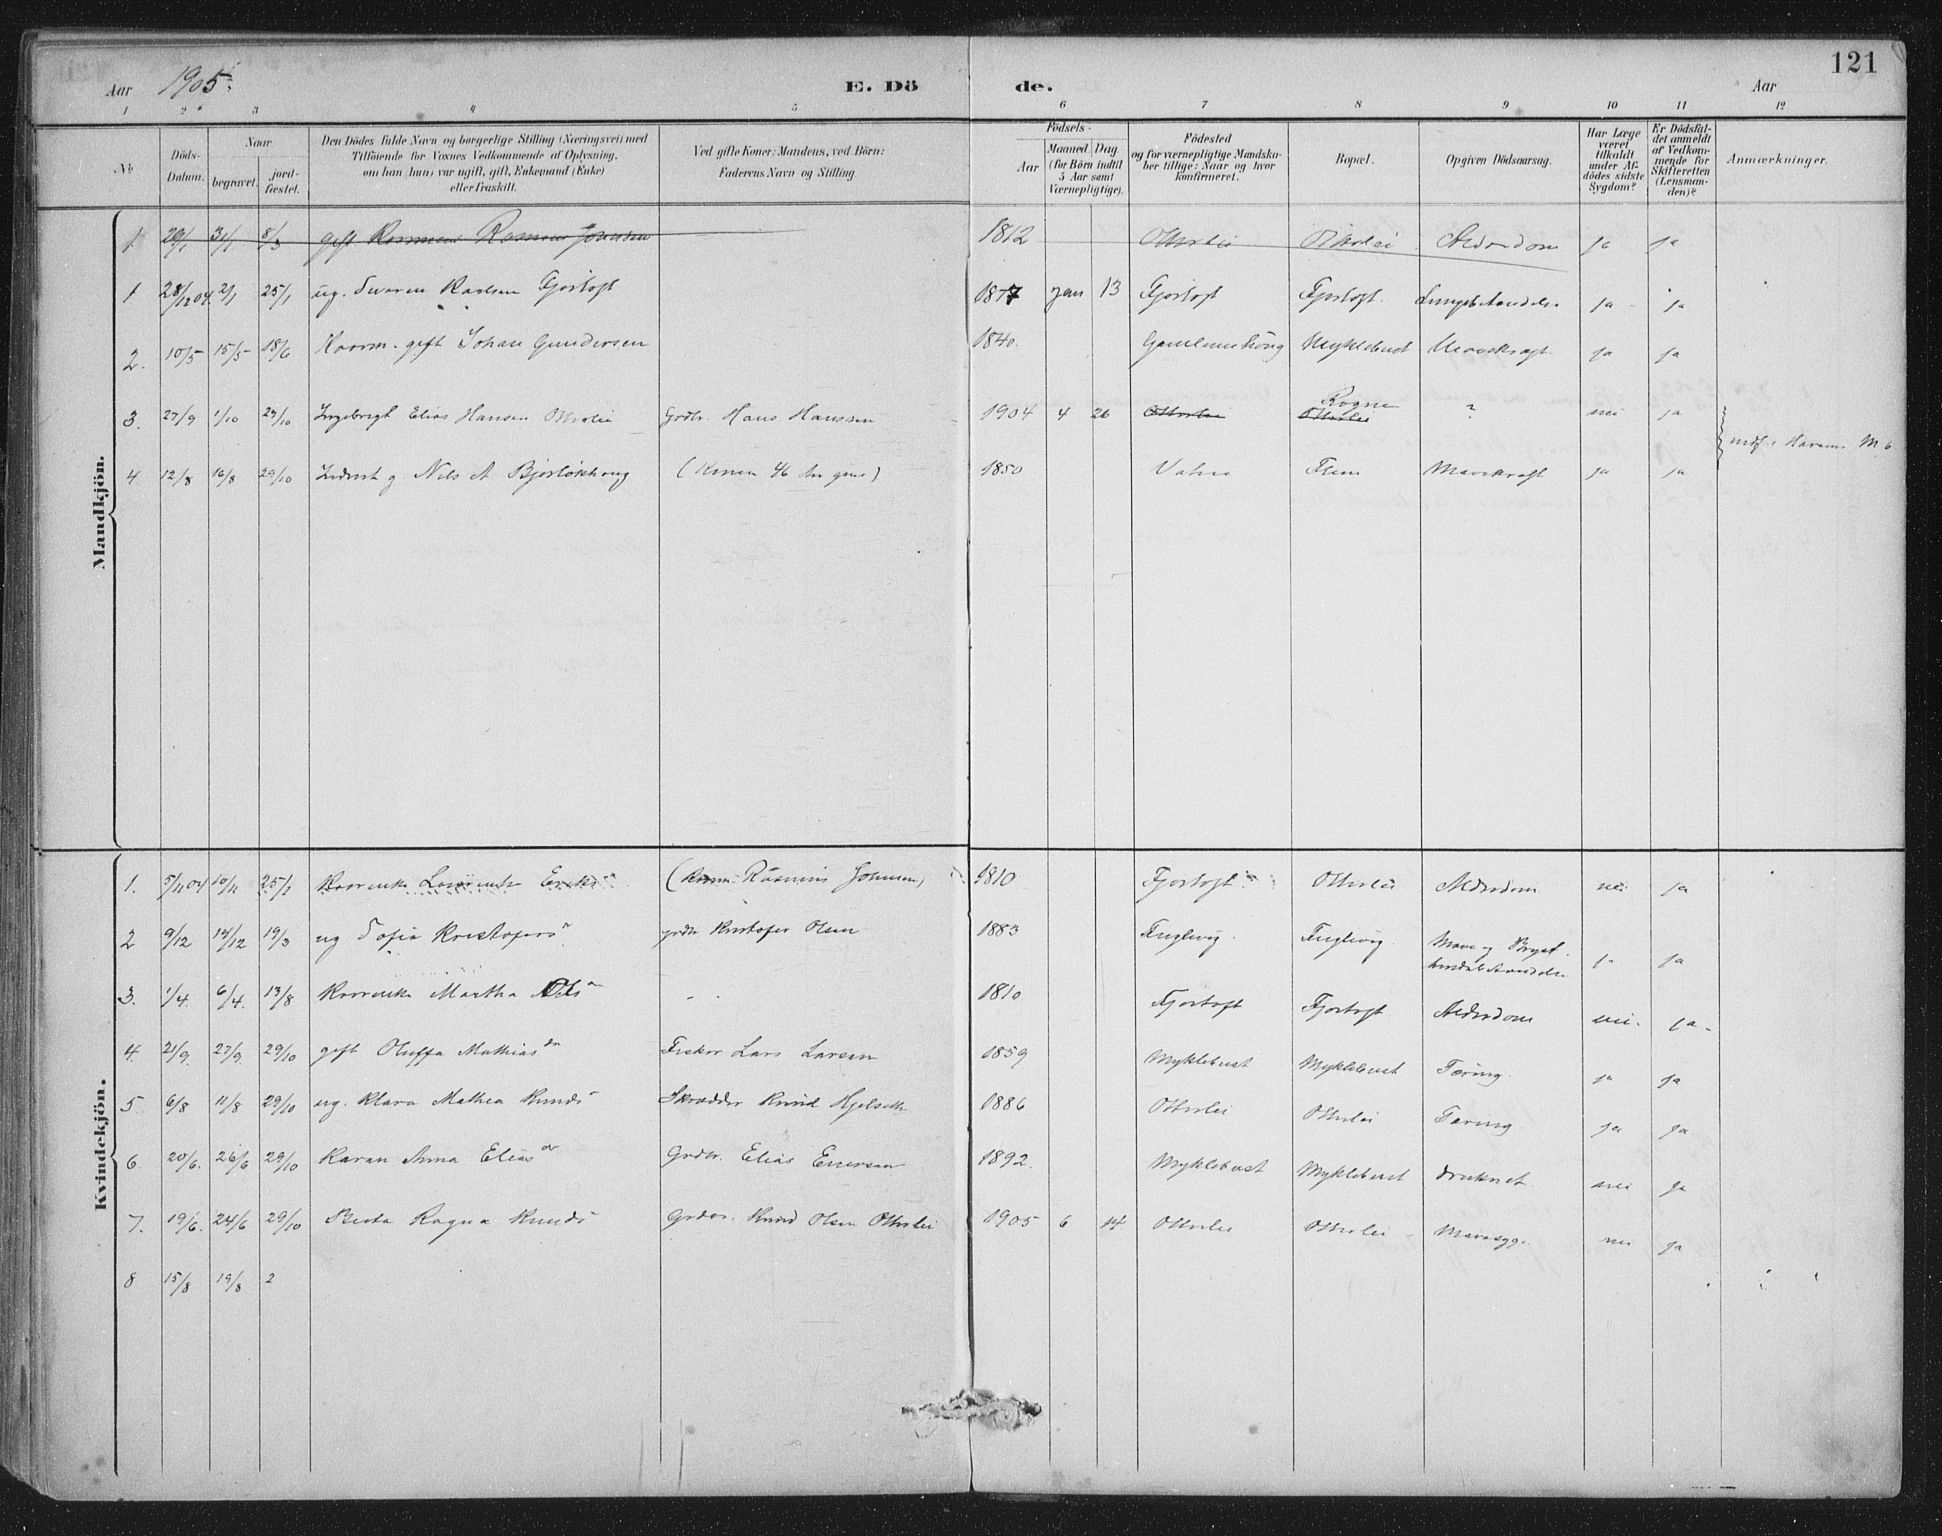 121
Aar 1905. E. Dö de. Aar
1 2 3 4 5 6 7 8 9 10 11 12
№ Döds-Datum. Naar begravet. jordfæstet. Den Dödes fulde Navn og borgerlige Stilling (Næringsvei) med Tilföiende for Voxnes Vedkommende af Oplysning, om han (hun) var ugift, gift, Enkemand (Enke) eller fraskilt. Ved gifte Koner: Mandens, ved Börn: Faderens Navn og Stilling. Födsels- Aar Maaned Dag (for Börn indtil 5 Aar samt Værnepligtige). Födested og for værnepligtige Mandskaber tillige: Naar og hvor konfirmeret. Bopæl. Opgiven Dödsaarsag. Har Læge været tilkaldt under Afdödes sidste Sygdom? Er Dödsfaldet anmeldt af Vedkommende for Skifteretten (Lensmanden)? Anmærkninger.
Mandkjön.
1 29/1 31/1 8/3 gift Rasmus Johnsen 1812 Otterlei Otterlei Alderdom ja ja
1 28/12 04 2/1 25/1 ug. Fjortoft 1877 Jan 13 Fjortoft Fjortoft ja ja
2. 10/5 15/5 18/6 gift Johan Gundersen 1840. Myklebust Mavekræft ja ja
3. 27/9 1/10 29/10 Ingebrigt Elias Hansen Otterlei Grdbr. Hans Hanssen 1904 4 26 Otterlei Rogne Otterlei ? nei ja
indf. i Harams M 6
4 12/8 16/8 29/10 Inderst g. Nils A (Konen 46 Aar) 1850 Vatne Flem Mavekræft ja ja
Kvindekjön.
1. 5/11 04 10/11 25/1 (Rasmus Johnsen) 1810 Fjortoft Otterlei Alderdom nei ja
2 9/12 14/12 19/3 ug Sofie Kristofers grdbr Kristofer Olsen 1883 Fuglevig. Fuglevig. Mave og Bryst- ja ja
3. 1/4. 6/4. 13/8 Martha Ols - . 1810 Fjortoft Fjortoft Alderdom nei. ja.
4. 21/9. 27/9. 29/10 gift Oluffa Mathiasdr Fisker Lars Larsen 1859 Myklebust Myklebust Tæring. ja ja
5 6/8 11/8 29/10 ug. Klara Mathea Knuds Skrædder Knud Hjelseth 1886 Otterlei Otterlei Tæring ja ja.
6. 20/6. 26/6 29/10 Karen Anna Eliasdr Grdbr. Elias Enersen 1892. Myklebust Myklebust druknet. nei ja
7. 19/6. 24/6 29/10 Berta Ragna Knuds Grdbr. Knud Olsen Otterlei 1905 6 14 Otterlei Otterlei Mavesyge nei ja
8 15/8 19/8 2